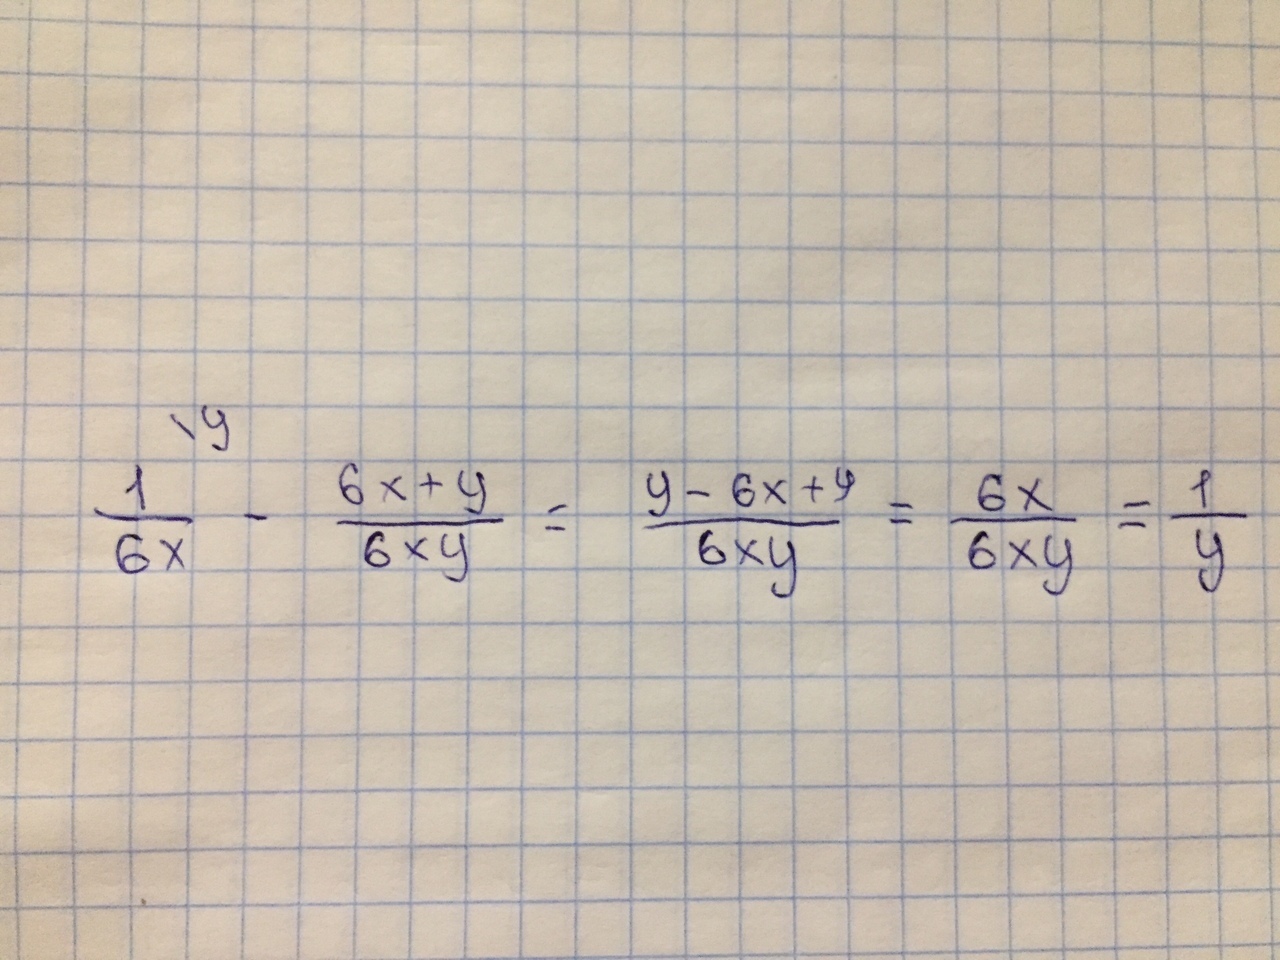 \y
1/6x - 6x+y/6xy = y-6x+y/6xy = 6x/6xy = 1/y